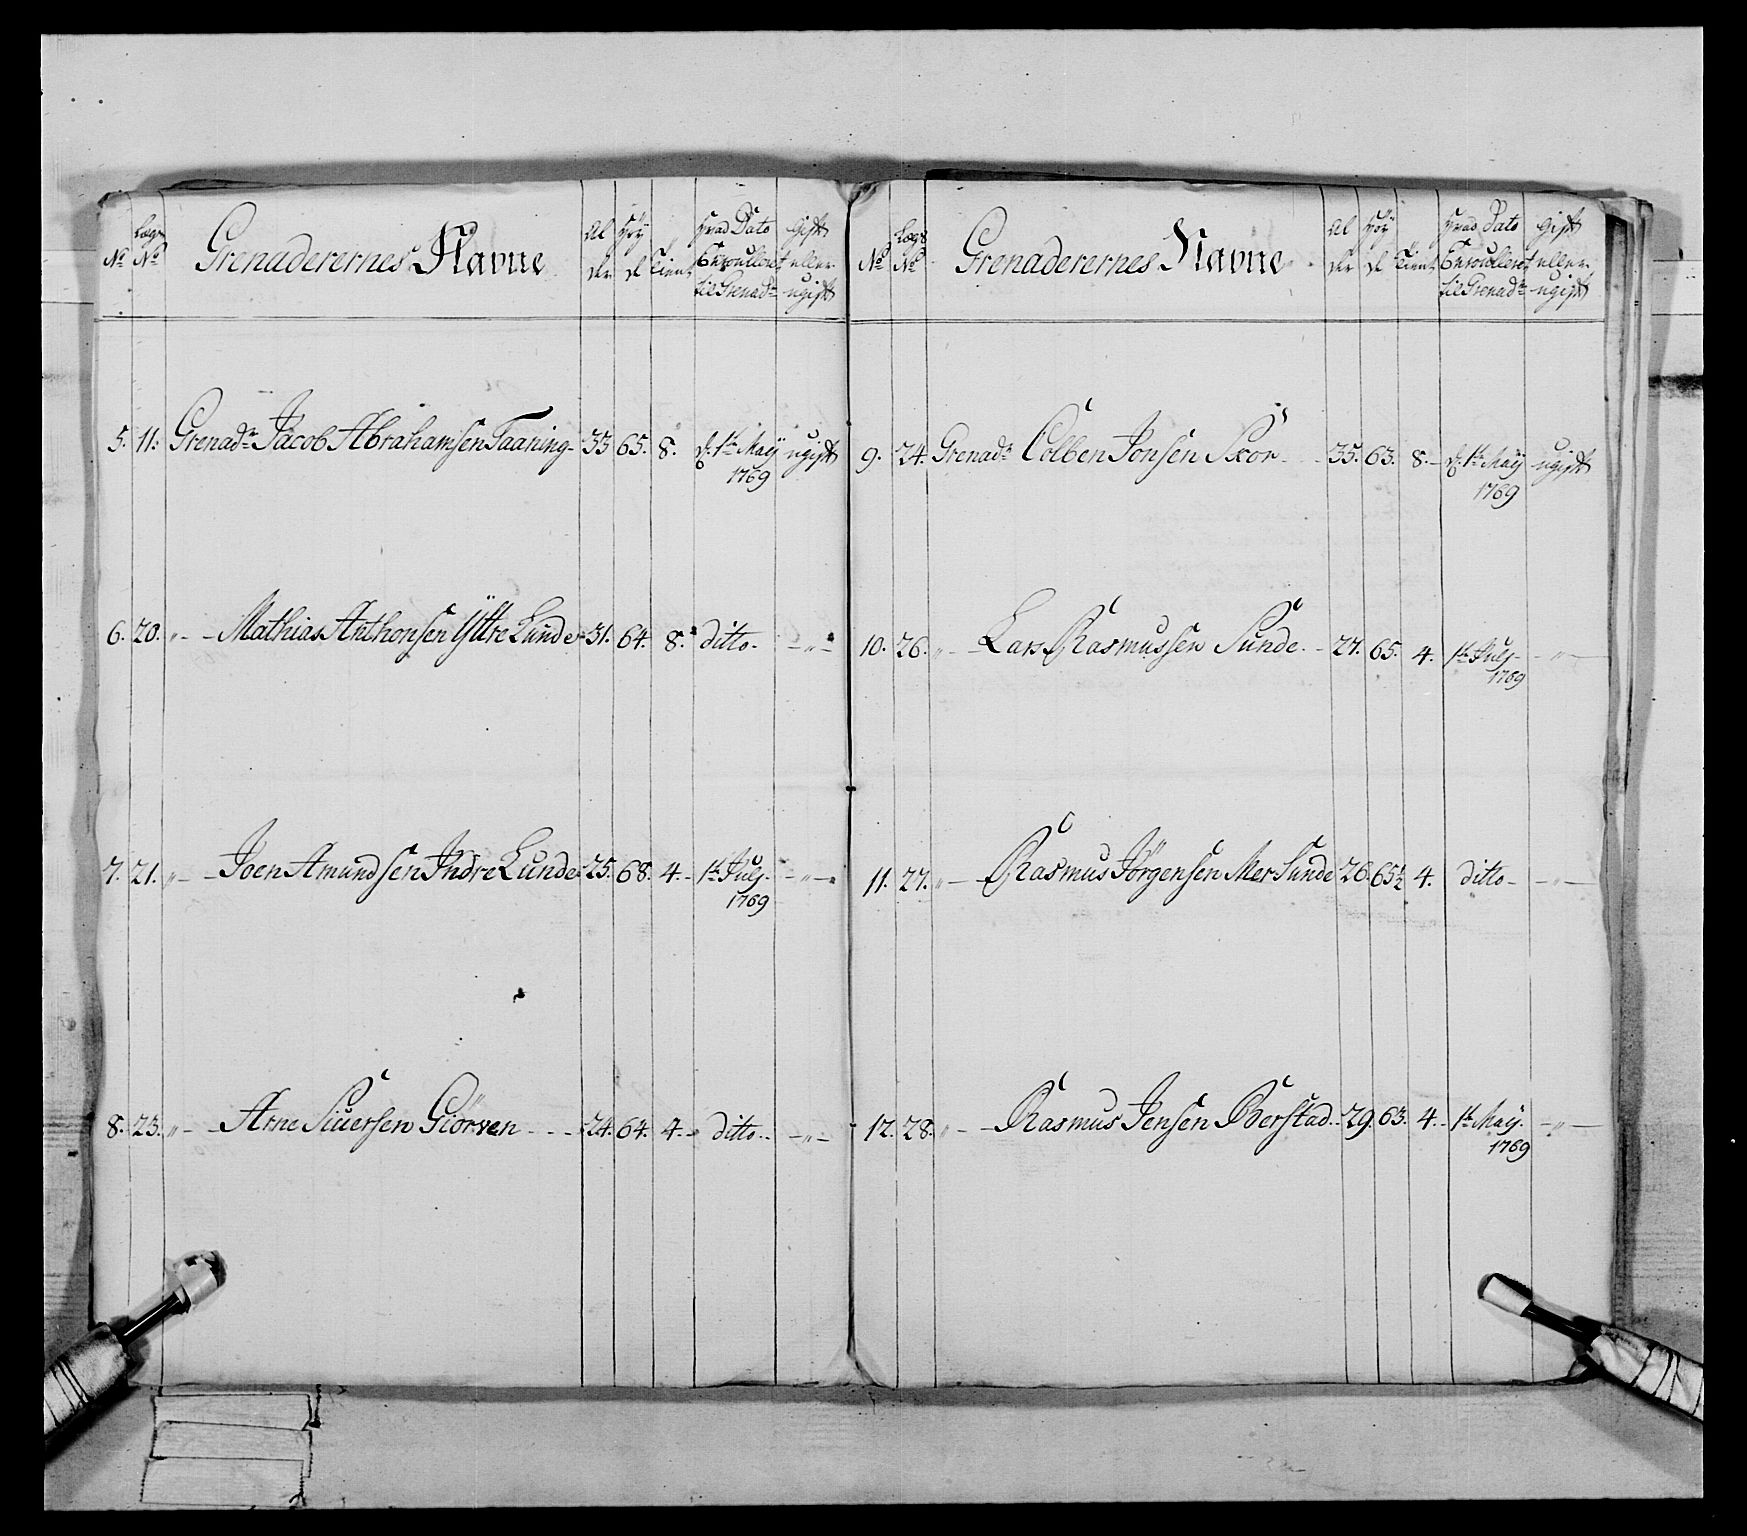 No. Lægs No. Grenaderernes Navne Alder Høyde Tient Hvad Dato Enroulleret til Grenadr. Gift eller ugift
5. 11. Grenadr. Jacob Abrahamsen Taaning 33 65. 8. d. 1te Maij 1769 ugift
6. 20. „ Mathias Anthonsen Yttre Lunde 31. 64. 8. ditto. „
7. 21. „ Joen Amundsen Indre Lunde 25. 68. 4. 1te Julj. 1769 „
8. 23. „ Arne Siuersen Giörven 24. 64. 4. ditto. „
No. Lægs No. Grenaderernes Navne Alder Høyde Tient Hvad Dato Enroulleret til Grenadr. Gift eller ugift
9. 24. Grenadr. Colben Jonsen Skor 35. 63. 8. d. 1te Maij 1769 ugift
10. 26. „ Lars Rasmussen Sunde 27. 65. 4. 1te Julj 1769 „
11. 27. „ Rasmus Jörgensen Mer Sunde 26. 65½ 4. ditto „
12. 28. „ Rasmus Jensen Berstad 29. 63. 4. 1te Maij. 1769 „